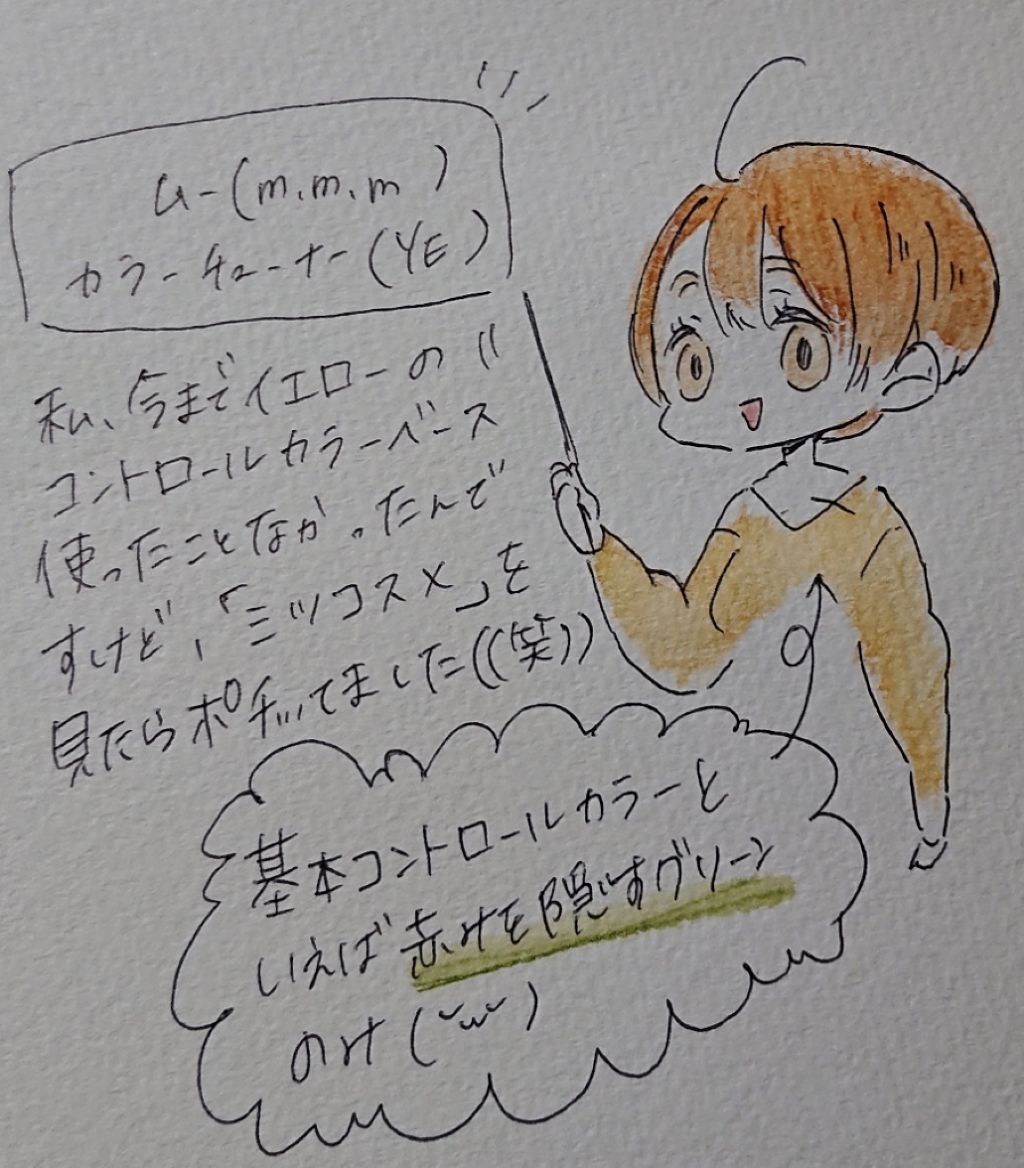 ムー(m.m.m)
カラーチューナー(YE)
私、今までイエローの
コントロールカラーベース
使ったことなかったんで
すけど、「ミツコスメ」を
見たらポチッてました((笑))
基本コントロールカラーと
いえば赤みを隠すグリーン
のみ(˘ω˘)